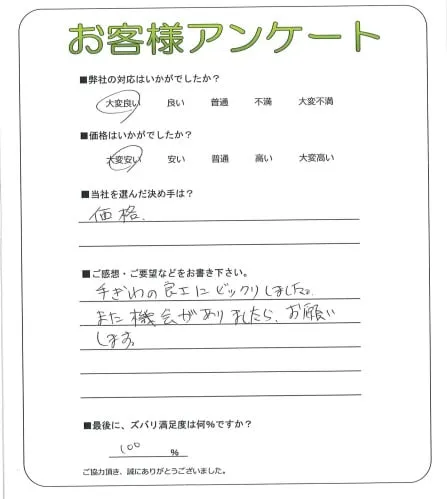 お客様アンケート
■弊社の対応はいかがでしたか？
大変良い 良い 普通 不満 大変不満
■価格はいかがでしたか？
大変安い 安い 普通 高い 大変高い
■当社を選んだ決め手は？
価格.
■ご感想・ご要望などをお書き下さい。
手ぎわの良さにビックリしました。
また機会がありましたら、お願い
します。
■最後に、ズバリ満足度は何％ですか？
100 %
ご協力頂き、誠にありがとうございました。